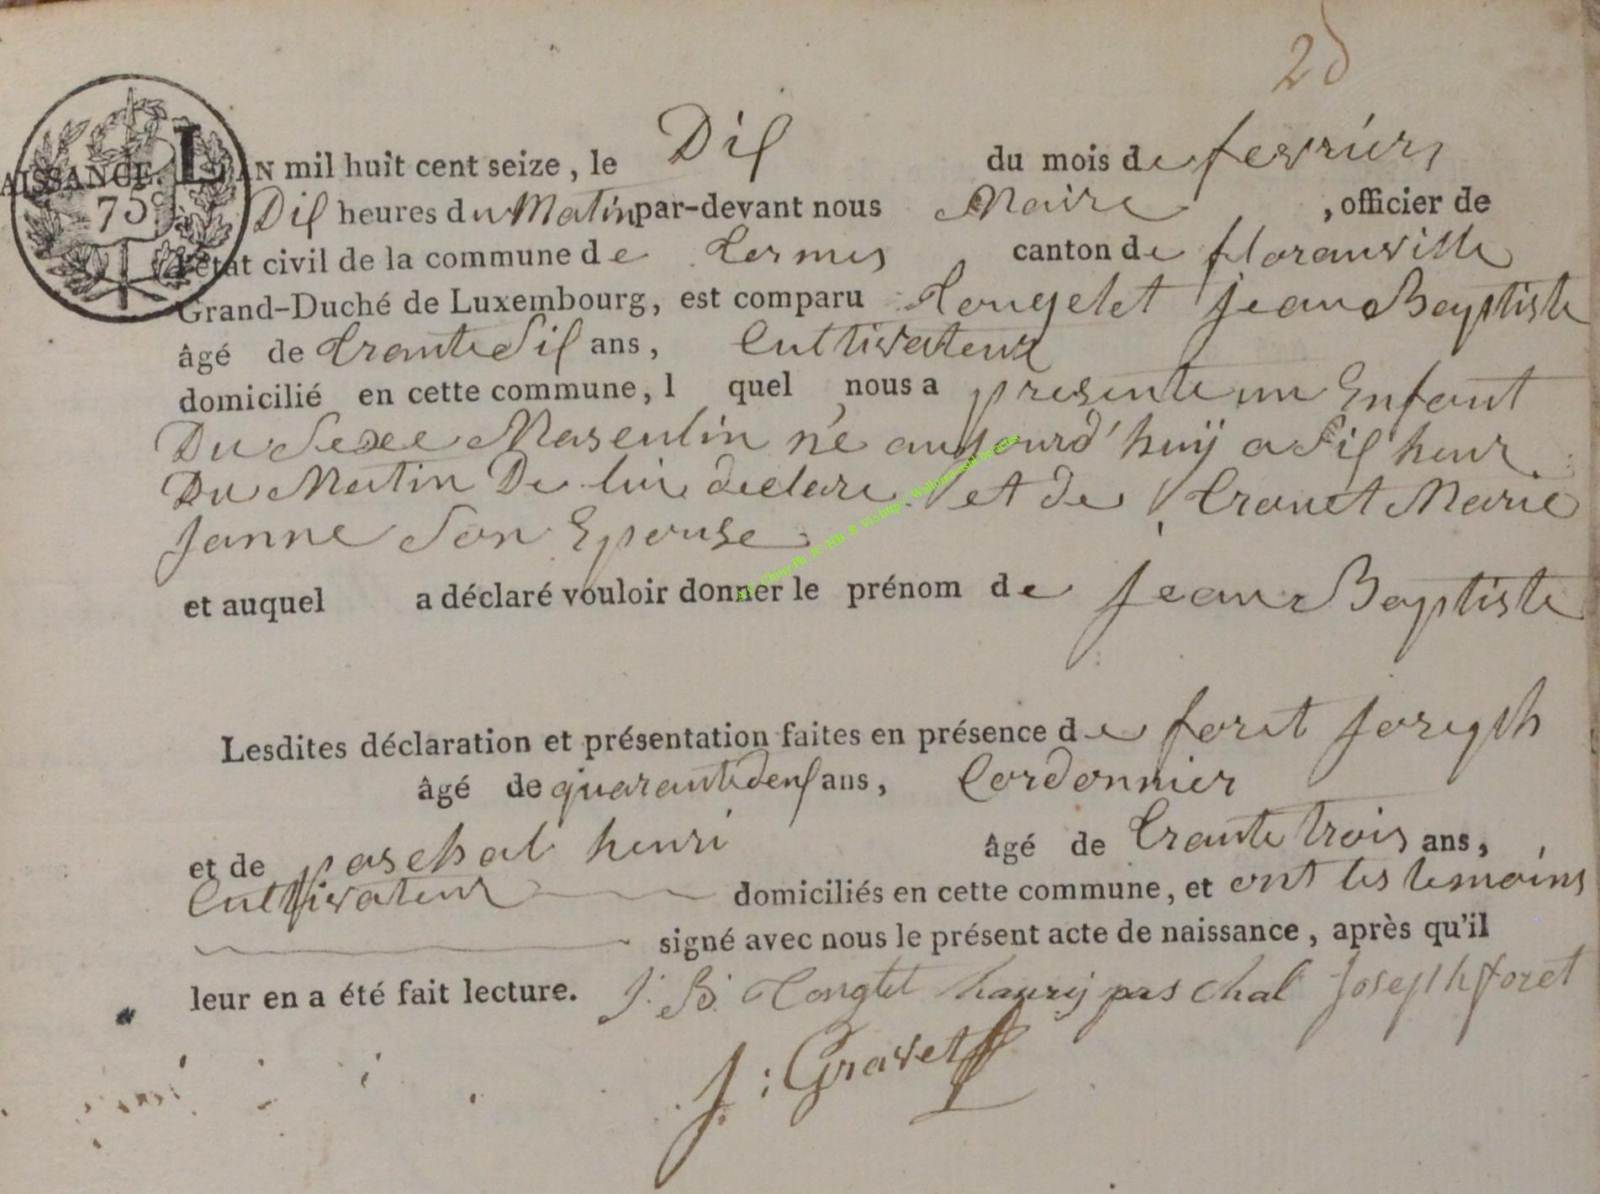 2d
AISSANCE. L'AN mil huit cent seize, le Dix du mois de fevrier
75 Dix heures du Matin par-devant nous Maire , officier de
l'état civil de la commune de Termes canton de floranville
Grand-Duché de Luxembourg, est comparu Jean Baptiste
âgé de trante Six ans, Cultivateur
domicilié en cette commune, l quel nous a presente un Enfant
Du Sexe Masculin né aujourd'huÿ a Six heur
Du Matin De lui declare et de Marie
Janne Son Epouse
et auquel a déclaré vouloir donner le prénom de jean Baptiste
Lesdites déclaration et présentation faites en présence de foret joseph
âgé de quarante deux ans, Cordonnier
et de paschal henri âgé de trante trois ans,
Cultivateur domiciliés en cette commune, et ont les temoins
signé avec nous le présent acte de naissance, après qu'il
leur en a été fait lecture. J. B. paschal joseph foret
J: Gravet